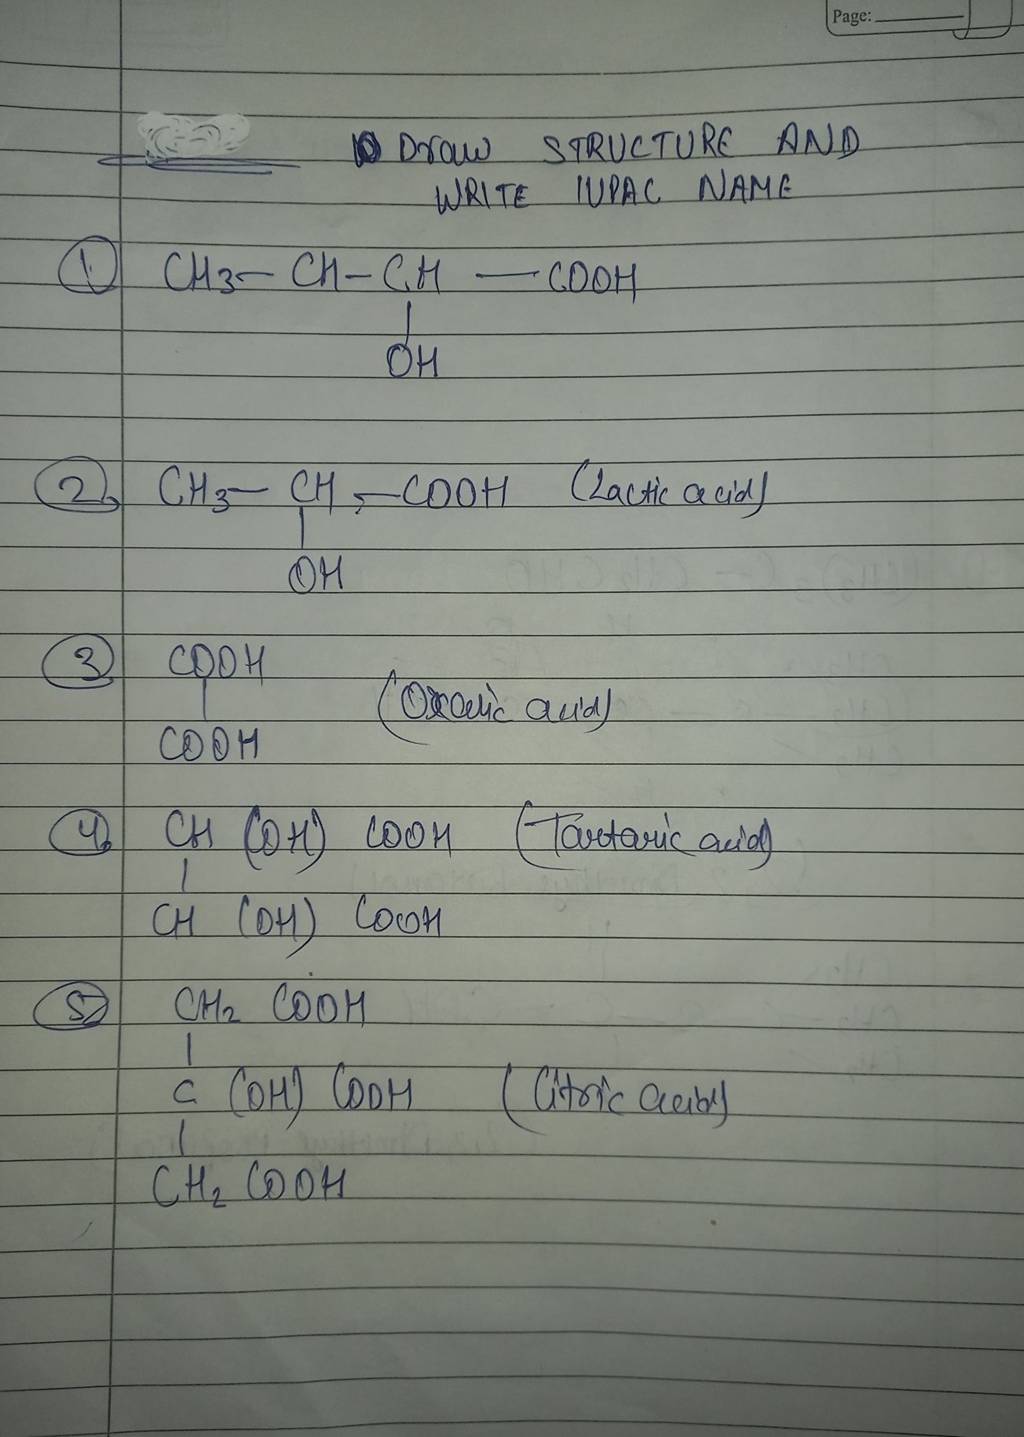 Page:
Draw STRUCTURE AND
WRITE IUPAC NAME
1. CH3 - CH - CH - COOH
|
OH
2. CH3 - CH - COOH (Lactic acid)
|
OH
3 COOH
|
(Oxalic acid)
COOH
4. CH (OH) COOH (Tartaric acid)
|
CH (OH) COOH
5. CH2 COOH
|
C (OH) COOH (Citric acid)
|
CH2 COOH